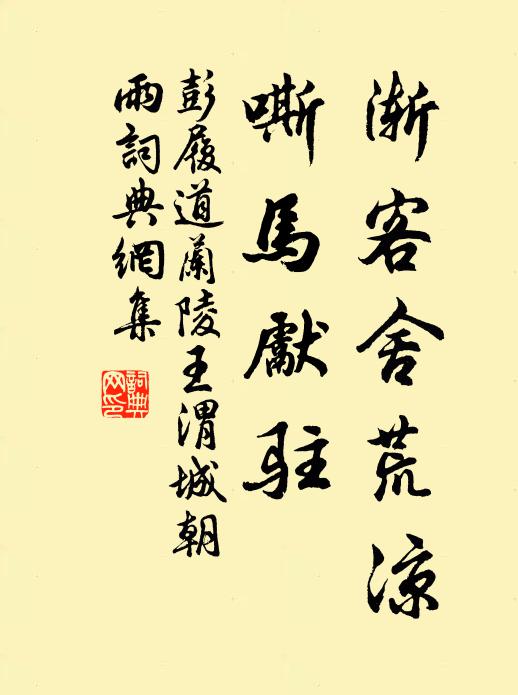 渐客舍荒凉
嘶馬獻駐
彭履道蘭陵王渭城朝
雨詞典網集
詞典
网印